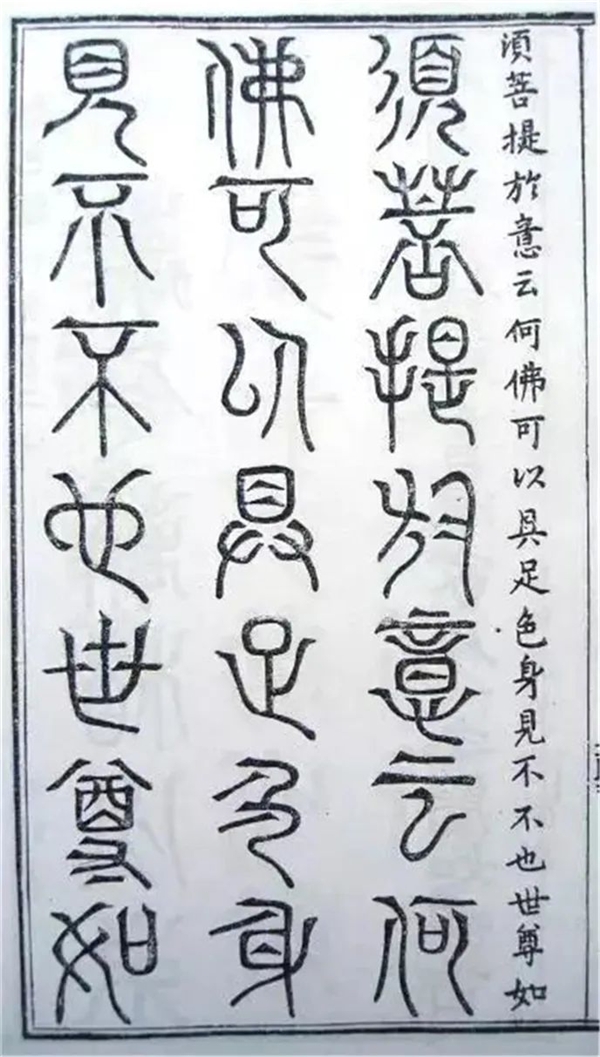 须菩提於意云何佛可以具足色身見不不也世尊如
須菩提於意云何
佛可以具足色身
見不不也世尊如